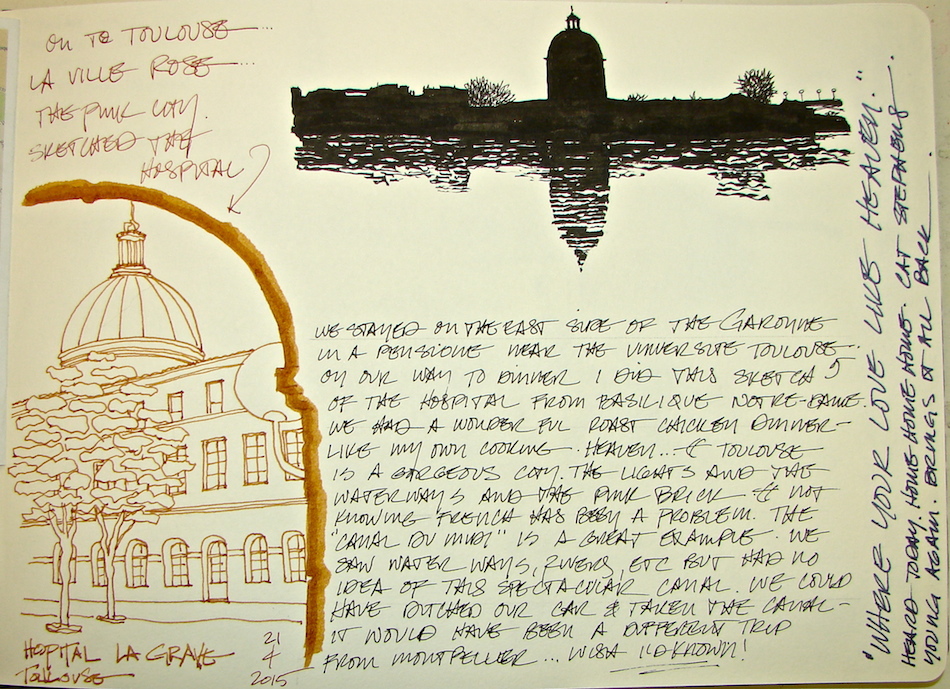 ON TO TOULOUSE...
LA VILLE ROSE...
THE PINK CITY.
SKETCHED THE
HOSPITAL
WE STAYED ON THE EAST SIDE OF THE GARONNE
IN A PENSIONE NEAR THE UNIVERSITE TOULOUSE...
ON OUR WAY TO DINNER I DID THIS SKETCH
OF THE HOSPITAL FROM BASILIQUE NOTRE-DAME.
WE HAD A WONDERFUL ROAST CHICKEN DINNER-
LIKE MY OWN COOKING. HEAVEN... & TOULOUSE
IS A GORGEOUS CITY, THE LIGHTS AND THE
WATERWAYS AND THE PINK BRICK & NOT
KNOWING FRENCH HAS BEEN A PROBLEM. THE
"CANAL DU MIDI" IS A GREAT EXAMPLE. WE
SAW WATER WAYS, RIVERS, ETC BUT HAD NO
IDEA OF THIS SPECTACULAR CANAL. WE COULD
HAVE DITCHED OUR CAR & TAKEN THE CANAL-
IT WOULD HAVE BEEN A DIFFERENT TRIP
FROM MONTPELLIER... WISH I'D KNOWN!
HOPITAL LA GRAVE
TOULOUSE
21
4
2015
"WHERE YOUR LOVE LIKE HEAVEN."
HEARD TODAY, HOME HOME HOME. CAT STEPHENS
VOICING AGAIN. BRINGS IT ALL BACK